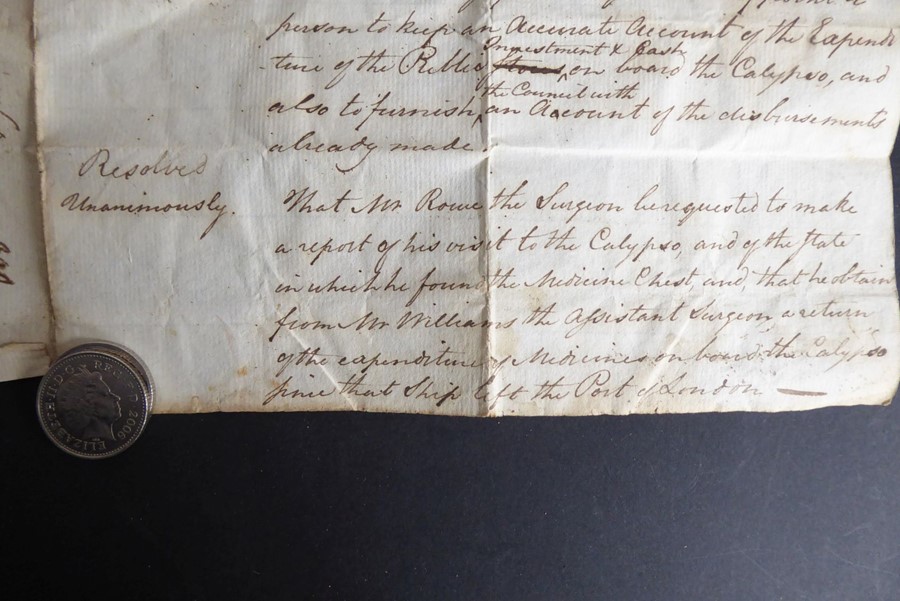 person to keep an Accurate Account of the Expendi
-ture of the Public Investment & Cash ~~Stores~~, on board the Calypso, and
also to furnish the Council with an Account of the disbursements
already made.
Resolved
Unanimously.
That Mr Rowe the Surgeon be requested to make
a report of his visit to the Calypso, and of the State
in which he found the Medicine Chest, and, that he obtain
from Mr Williams the Assistant Surgeon a return
of the expenditure of Medicines on board the Calypso
since that Ship left the Port of London
ELIZABETH II D G REG F D 2006